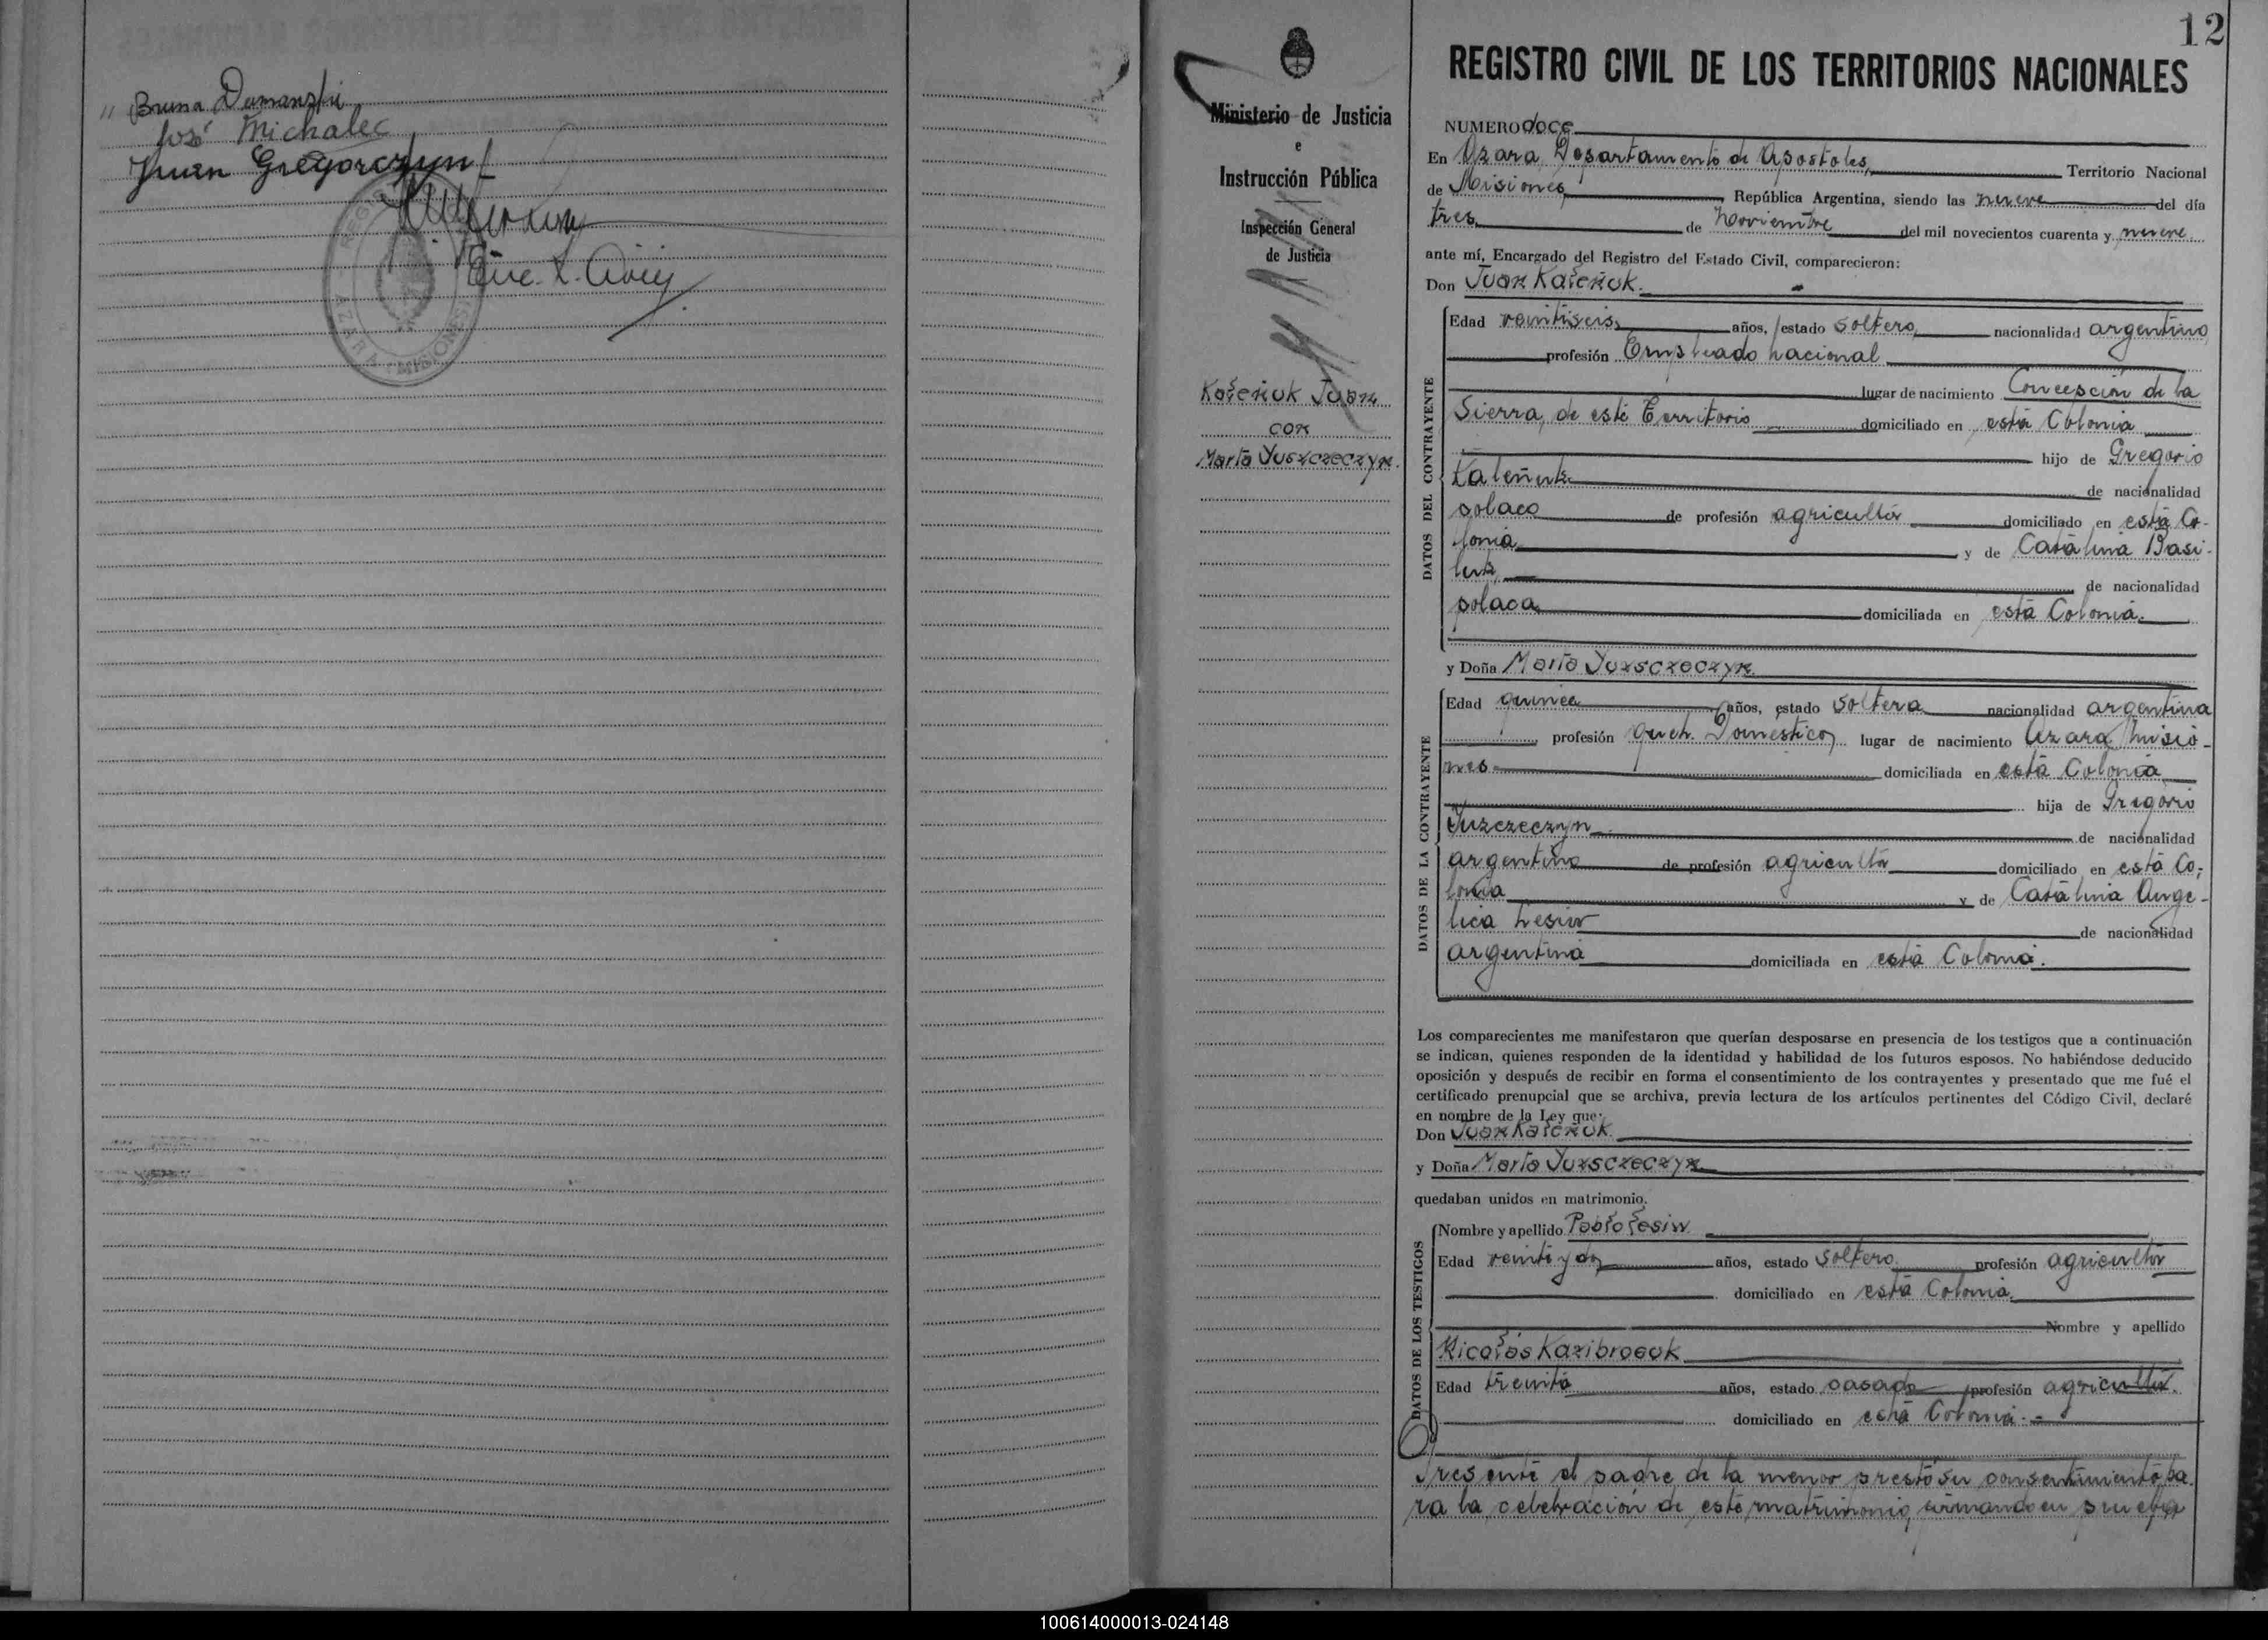 Bruna Dumanski
José Michalec
Juan Gregorczyn
AZARA MISIONES
12
Ministerio de Justicia
e
Instrucción Pública
Inspección General
de Justicia
Kałeñuk Juan
con
Marta Yuszczeczyn.
REGISTRO CIVIL DE LOS TERRITORIOS NACIONALES
NUMERO doce
En Azara, Departamento de Apostoles, Territorio Nacional
de Misiones República Argentina, siendo las nueve del día
tres de Noviembre del mil novecientos cuarenta y nueve
ante mí, Encargado del Registro del Estado Civil, comparecieron:
Don Juan Kałeñuk.
DATOS DEL CONTRAYENTE
Edad veintiseis años, estado soltero, nacionalidad argentino,
profesión Empleado nacional
lugar de nacimiento Concepción de la
Sierra, de este Territorio domiciliado en esta Colonia
hijo de Gregorio
Kaleñuk de nacionalidad
polaco de profesión agricultor domiciliado en esta Co-
lonia y de Catalina Basi-
luk, de nacionalidad
polaca domiciliada en esta Colonia.
y Doña Marta Yuzsczeczyn.
DATOS DE LA CONTRAYENTE
Edad quince años, estado soltera nacionalidad argentina
profesión queh. Domésticos, lugar de nacimiento Azara Misio-
nes domiciliada en esta Colonia
hija de Gregorio
Yuzczeczyn de nacionalidad
argentino de profesión agricultor domiciliado en esta Co-
lonia y de Catalina Ange-
lica Lesiw de nacionalidad
argentina domiciliada en esta Colonia.
Los comparecientes me manifestaron que querían desposarse en presencia de los testigos que a continuación
se indican, quienes responden de la identidad y habilidad de los futuros esposos. No habiéndose deducido
oposición y después de recibir en forma el consentimiento de los contrayentes y presentado que me fué el
certificado prenupcial que se archiva, previa lectura de los artículos pertinentes del Código Civil, declaré
en nombre de la Ley que:
Don Juan Kałeñuk.
y Doña Marta Yuzsczeczyn
quedaban unidos en matrimonio.
DATOS DE LOS TESTIGOS
Nombre y apellido Pabło Łesiw
Edad veinti y dos años, estado soltero profesión agricultor
domiciliado en esta Colonia.
Nombre y apellido
Nicołás Kazibroeuk
Edad treinta años, estado casado profesión agricultor.
domiciliado en esta Colonia.-
Presente el padre de la menor prestó su consentimiento pa-
ra la celebración de este matrimonio, firmando en prueba
100614000013-024148